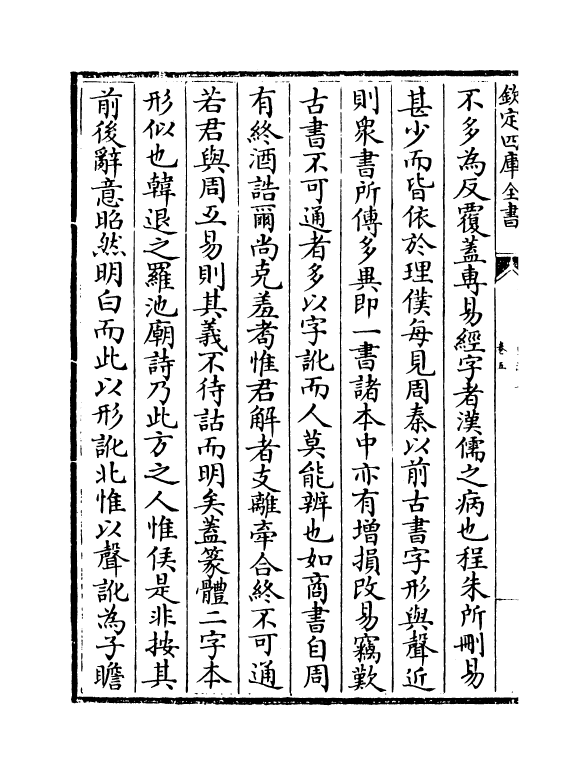 欽定四庫全書
卷五
不多為反覆蓋專易經字者漢儒之病也程朱所刪易
甚少而皆依於理僕每見周秦以前古書字形與聲近
則衆書所傳多異即一書諸本中亦有增損改易竊歎
古書不可通者多以字訛而人莫能辨也如商書自周
有終酒誥爾尚克羞耉惟君解者支離牽合終不可通
若君與周互易則其義不待詁而明矣蓋篆體二字本
形似也韓退之羅池廟詩乃此方之人惟侯是非按其
前後辭意昭然明白而此以形訛北惟以聲訛為子瞻